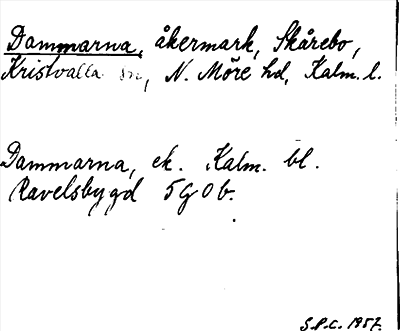 Dammarna, åkermark, Skårebo,
Kristvalla sn, N. Möre hd, Kalm. l.
Dammarna, ek. Kalm. bl.
Ravelsbygd 5 G O b.
S.P.C. 1957.